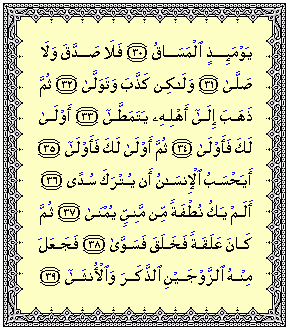 يَوْمَئِذٍ ٱلْمَسَاقُ ﴿٣٠﴾ فَلَا صَدَّقَ وَلَا
صَلَّىٰ ﴿٣١﴾ وَلَـٰكِن كَذَّبَ وَتَوَلَّىٰ ﴿٣٢﴾ ثُمَّ
ذَهَبَ إِلَىٰٓ أَهْلِهِۦ يَتَمَطَّىٰٓ ﴿٣٣﴾ أَوْلَىٰ
لَكَ فَأَوْلَىٰ ﴿٣٤﴾ ثُمَّ أَوْلَىٰ لَكَ فَأَوْلَىٰٓ ﴿٣٥﴾
أَيَحْسَبُ ٱلْإِنسَـٰنُ أَن يُتْرَكَ سُدًى ﴿٣٦﴾
أَلَمْ يَكُ نُطْفَةً مِّن مَّنِىٍّ يُمْنَىٰ ﴿٣٧﴾ ثُمَّ
كَانَ عَلَقَةً فَخَلَقَ فَسَوَّىٰ ﴿٣٨﴾ فَجَعَلَ
مِنْهُ ٱلزَّوْجَيْنِ ٱلذَّكَرَ وَٱلْأُنثَىٰٓ ﴿٣٩﴾